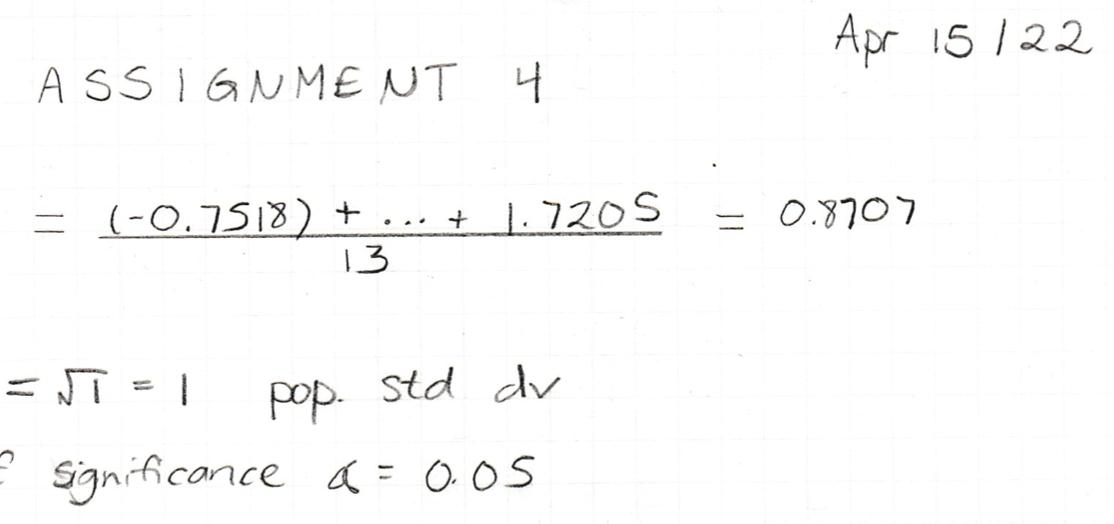 Apr 15 / 22
ASSIGNMENT 4
= (-0.7518) + ... + 1.7205 / 13 = 0.8707
= √1 = 1 pop. std dv
significance α = 0.05